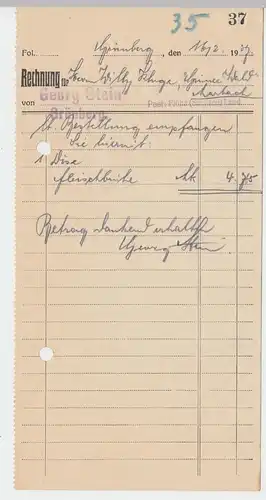 35 37
Fol. Grünberg, den 16/2. 1937
Rechnung für Herrn Willy Kluge,
Georg Stein
Grünberg
von
lt. Bestellung empfangen
Sie hiermit:
1 Dose
Fleischbrühe Mk. 4.75
Betrag dankend erhalten
Georg Stein